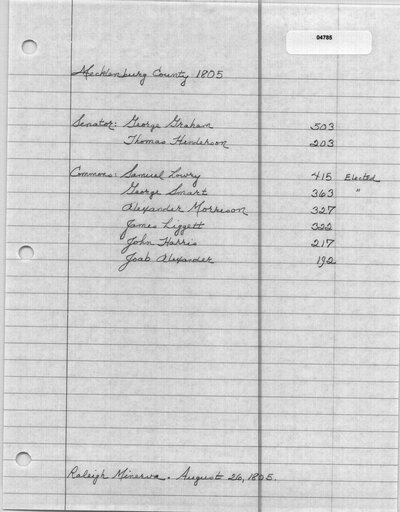 04785
Mecklenburg County 1805
Senator: George Graham 503
Thomas Henderson 203
Commons: Samuel Lowry 415 Elected
George Smart 363 "
Alexander Morrison 327
James Liggett 322
John Harris 217
Joab Alexander 192
Raleigh Minerva. August 26, 1805.